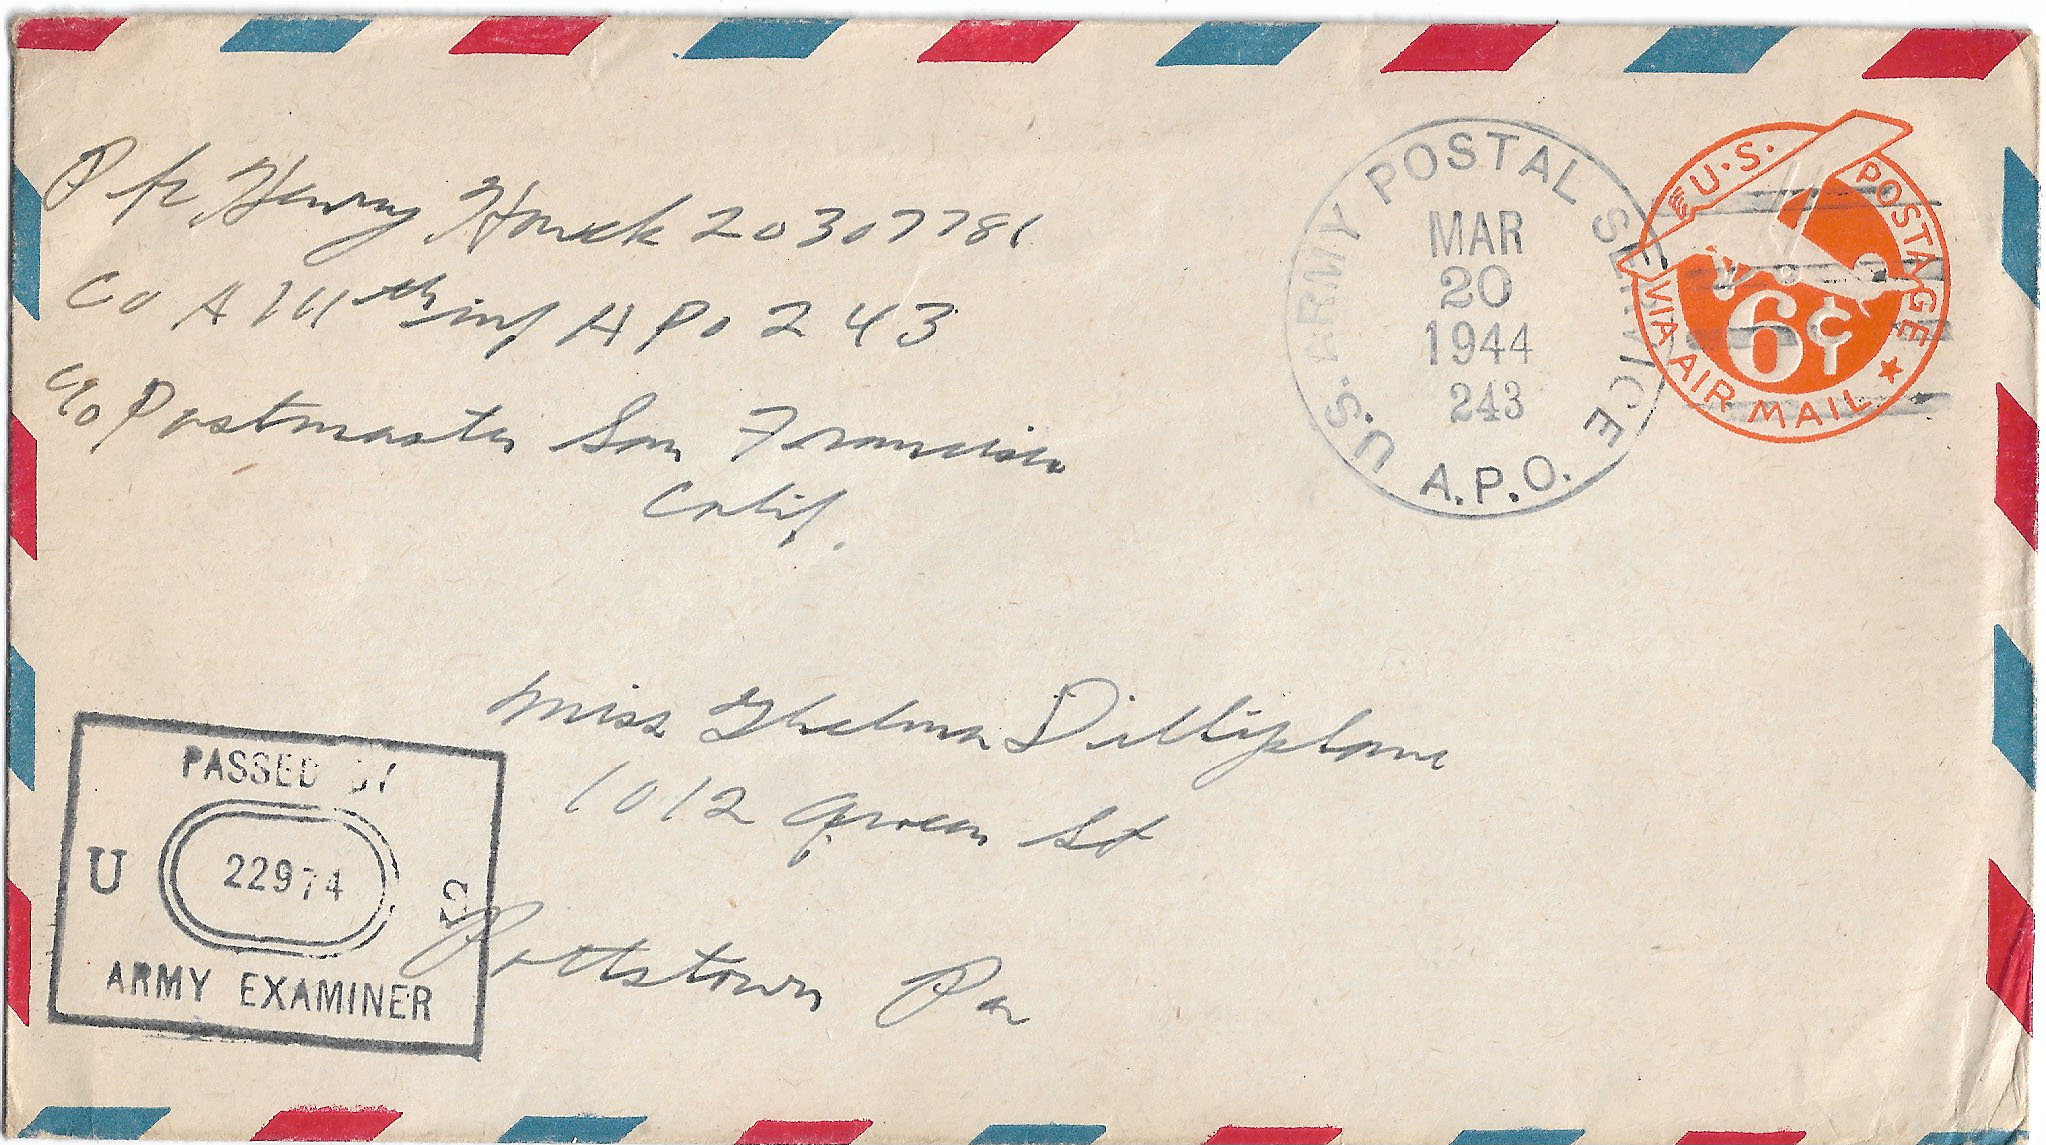 Pfc Henry Houck 20307781
Co A 111th inf APO 243
c/o Postmaster San Francisco
Calif.
U.S. ARMY POSTAL SERVICE
MAR
20
1944
243
A.P.O.
U.S. POSTAGE
6¢
VIA AIR MAIL
Miss Thelma Dilliplane
1012 Green St
Pottstown Pa
PASSED BY
U 22974
ARMY EXAMINER